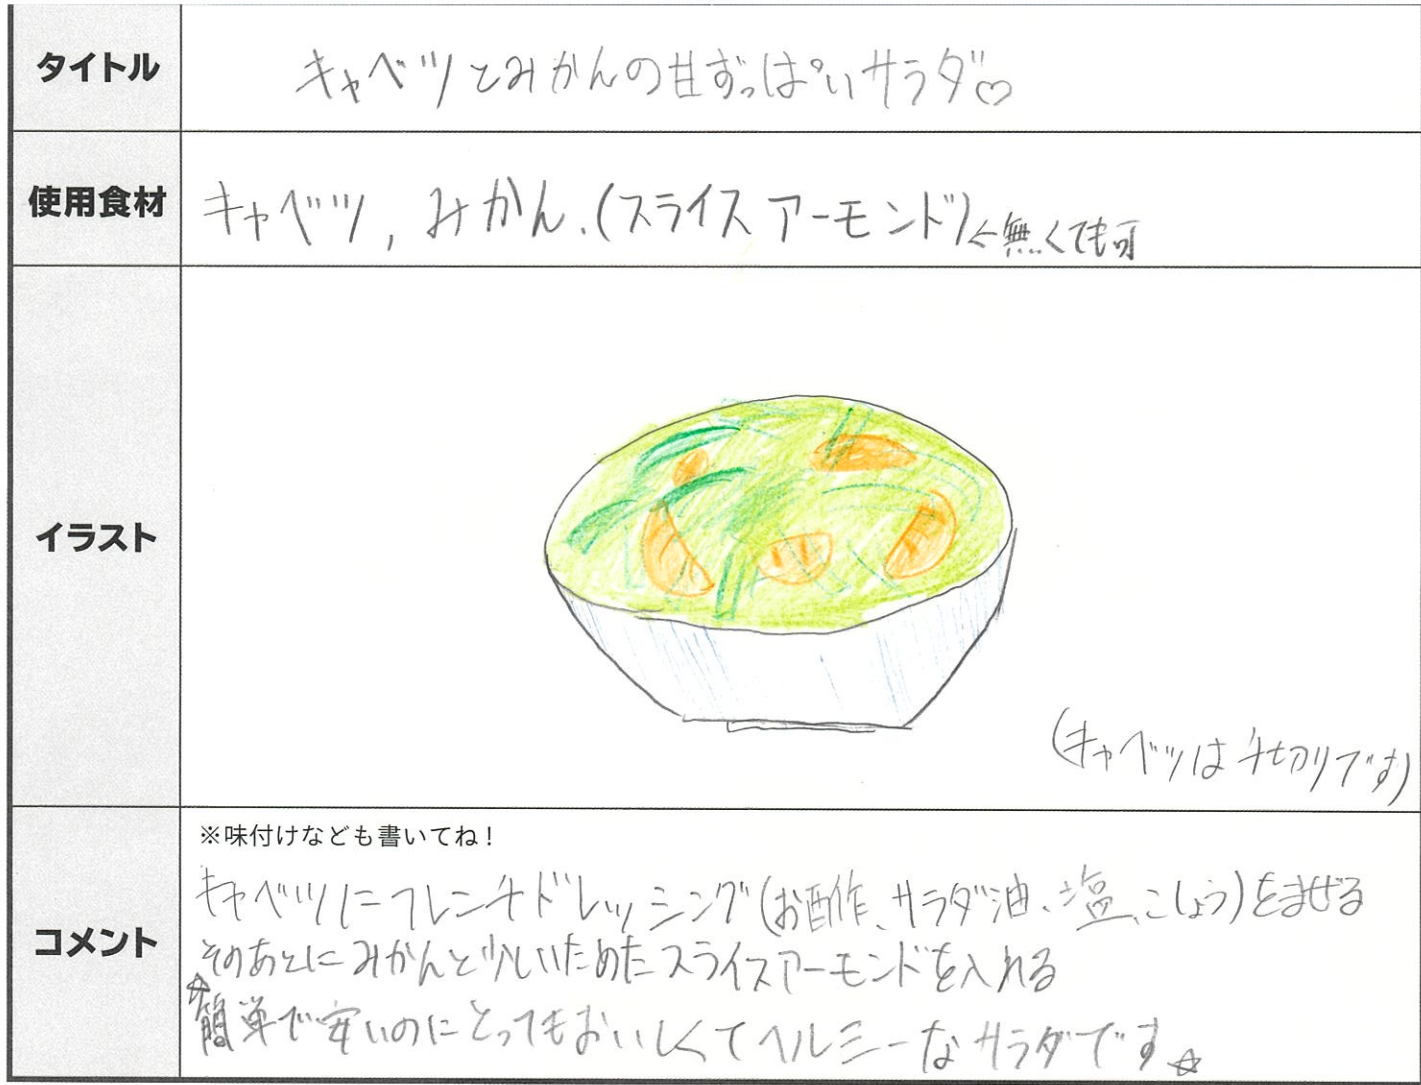 タイトル
キャベツとみかんの甘ずっぱいサラダ♡
使用食材
キャベツ, みかん.(スライスアーモンド)←無くても可
イラスト
(キャベツは千切りです)
コメント
※味付けなども書いてね!
キャベツにフレンチドレッシング(お酢、サラダ油、塩、こしょう)をまぜる
そのあとにみかんと少しいためたスライスアーモンドを入れる
☆簡単で安いのにとってもおいしくてヘルシーなサラダです☆